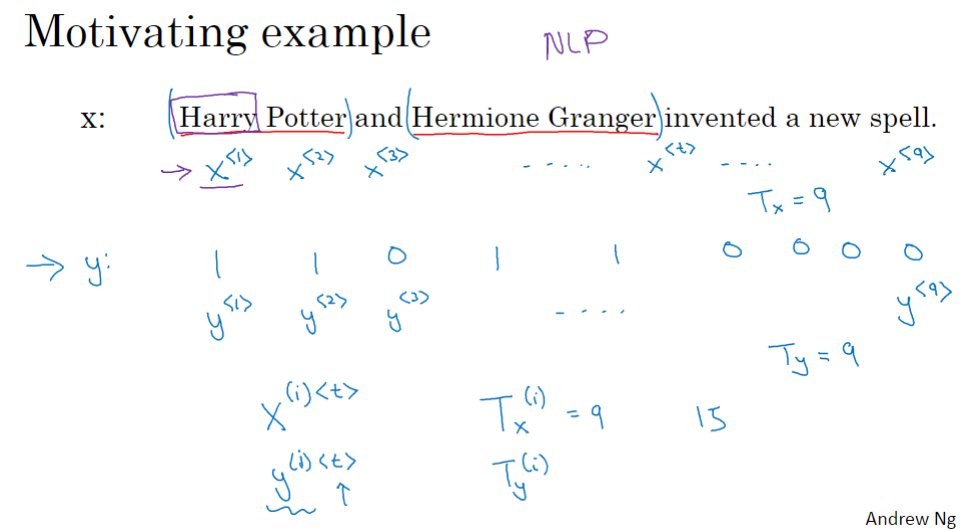 Motivating example NLP
x: Harry Potter and Hermione Granger invented a new spell.
→ x<1> x<2> x<3> ..... x<t> .... x<9>
Tx = 9
→ y: 1 1 0 1 1 0 0 0 0
y<1> y<2> y<3> .... y<9>
Ty = 9
X(i)<t> Tx(i) = 9 15
y(i)<t> Ty(i)
Andrew Ng